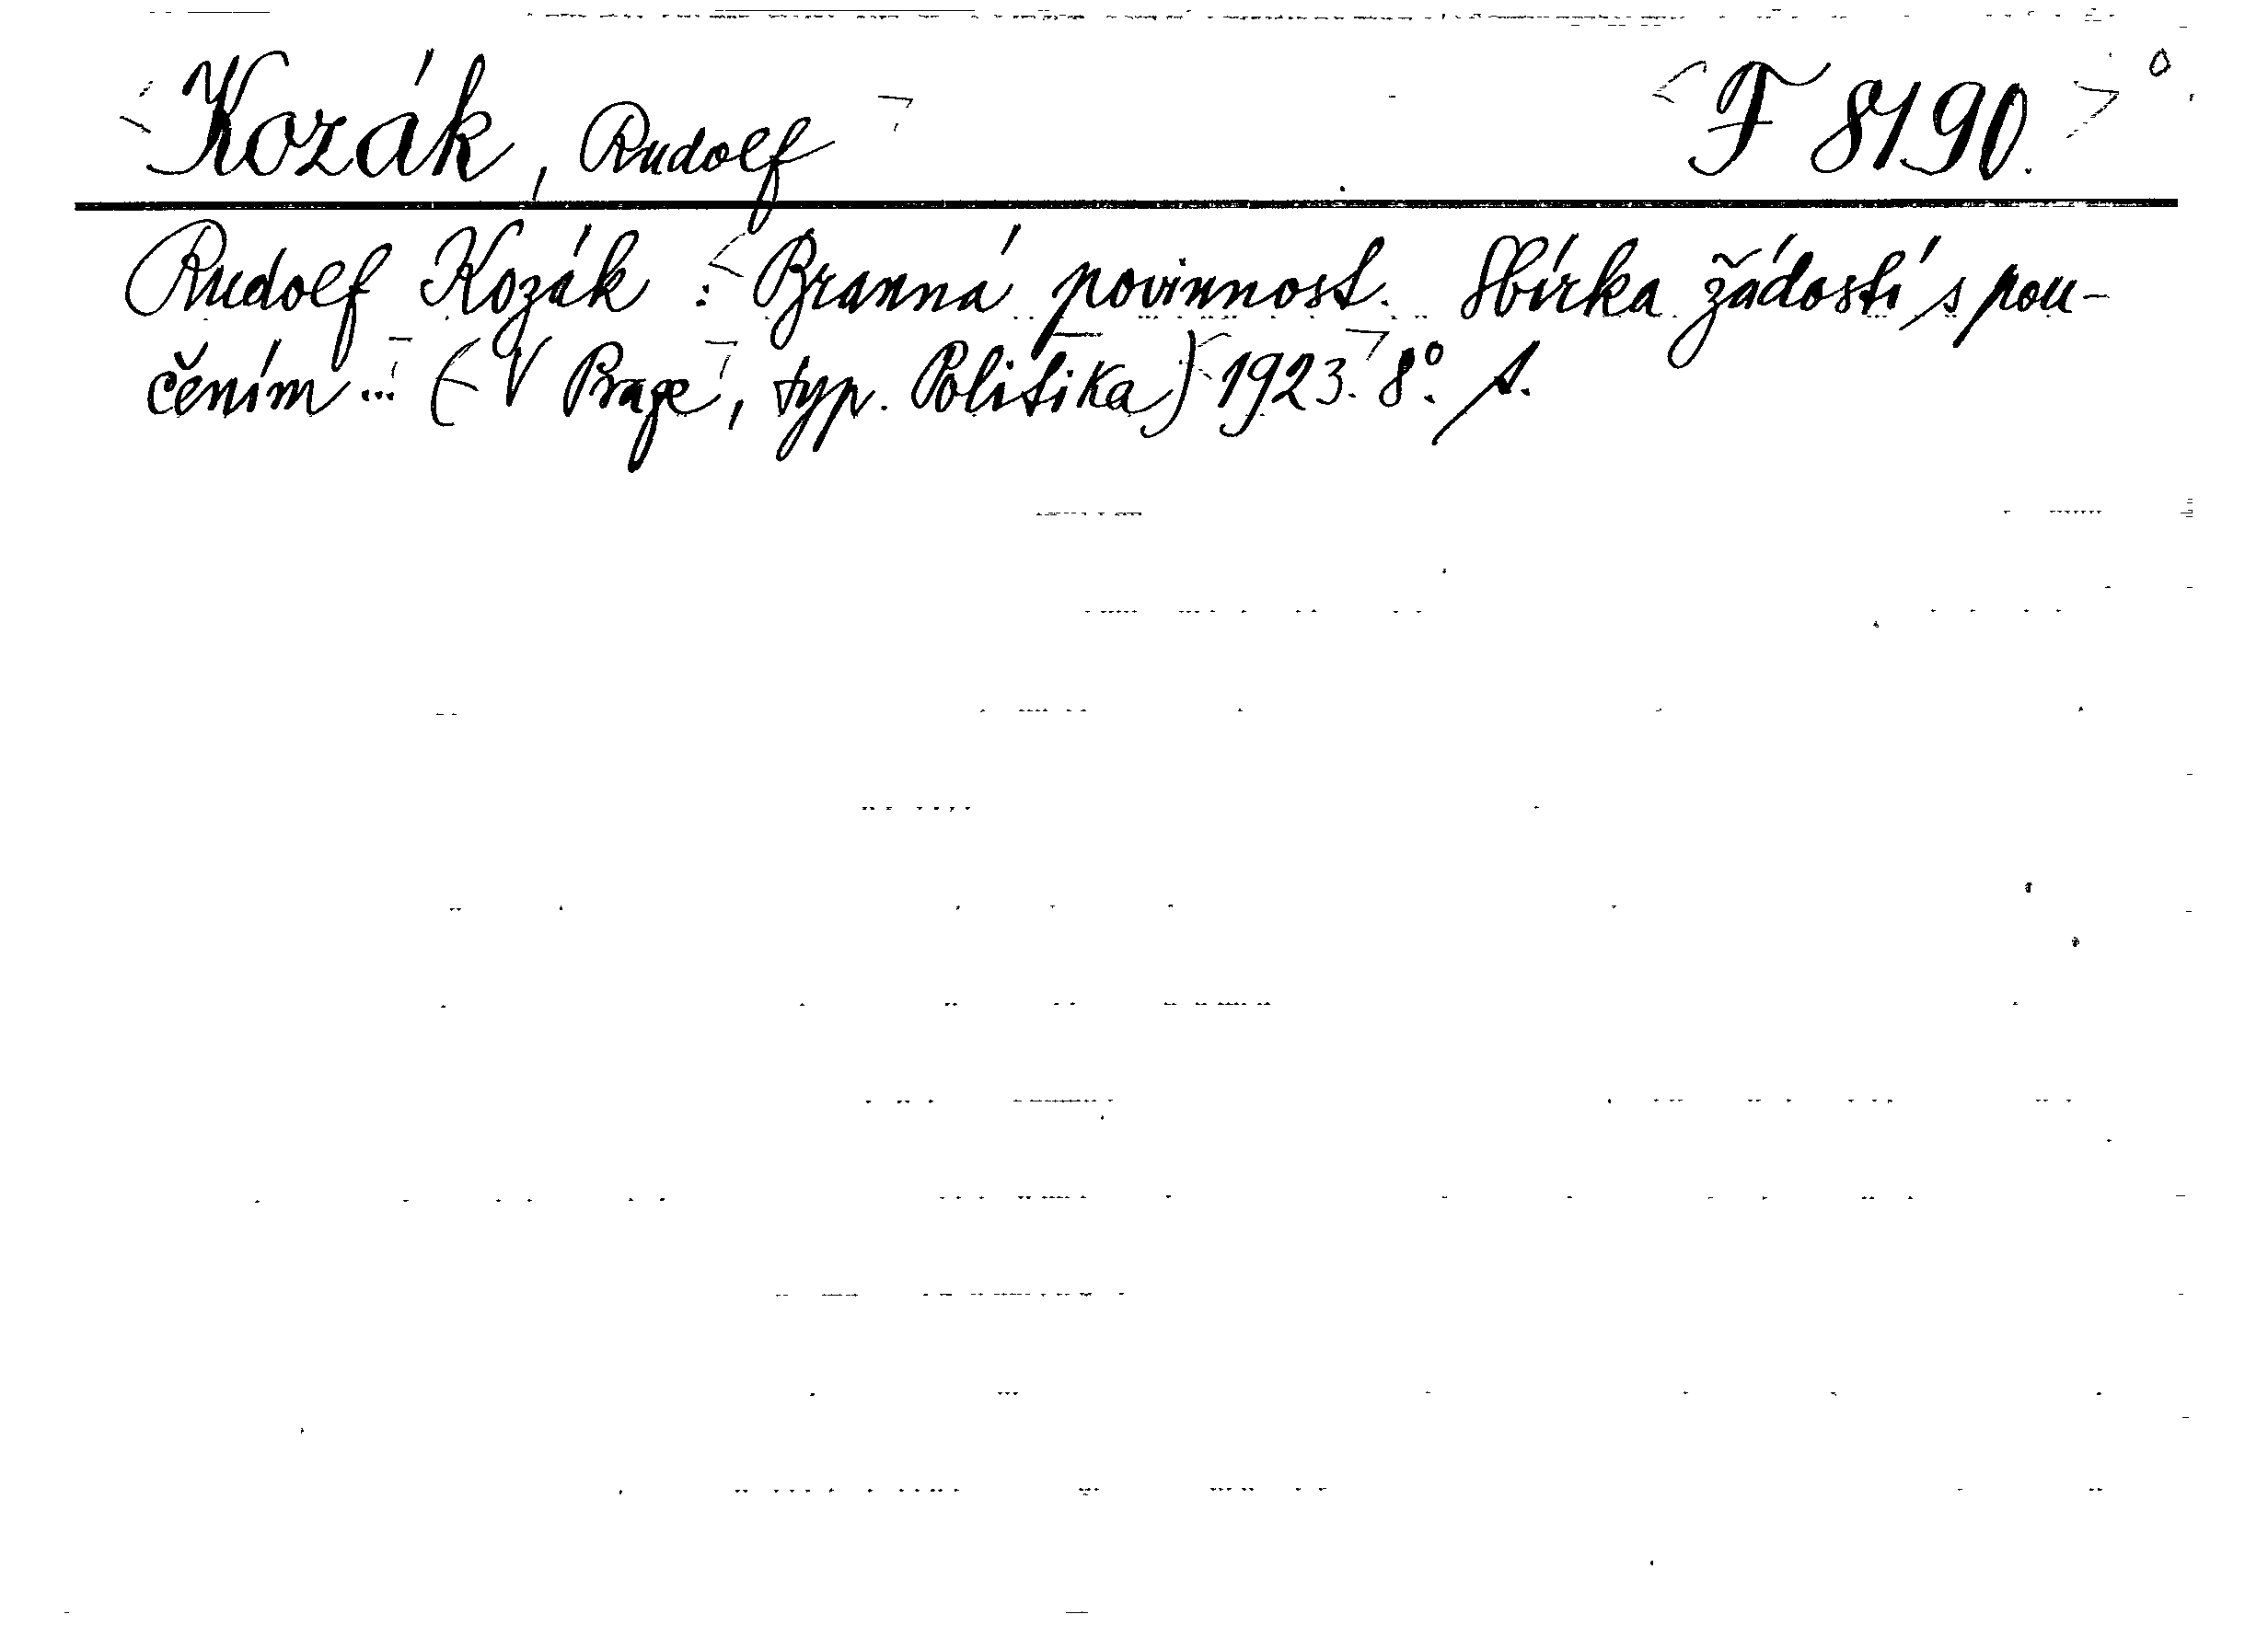 Kozák, Rudolf F 8190.
Rudolf Kozák : Branná povinnost. Sbírka žádostí s pou-
čením ... (V Praze, typ. Politika) 1923. 8°. s.